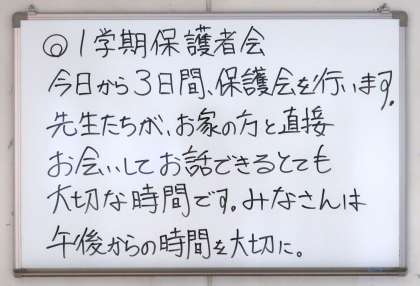 ◎1学期保護者会
今日から3日間、保護会を行います。
先生たちが、お家の方と直接
お会いしてお話できるとても
大切な時間です。みなさんは
午後からの時間を大切に。